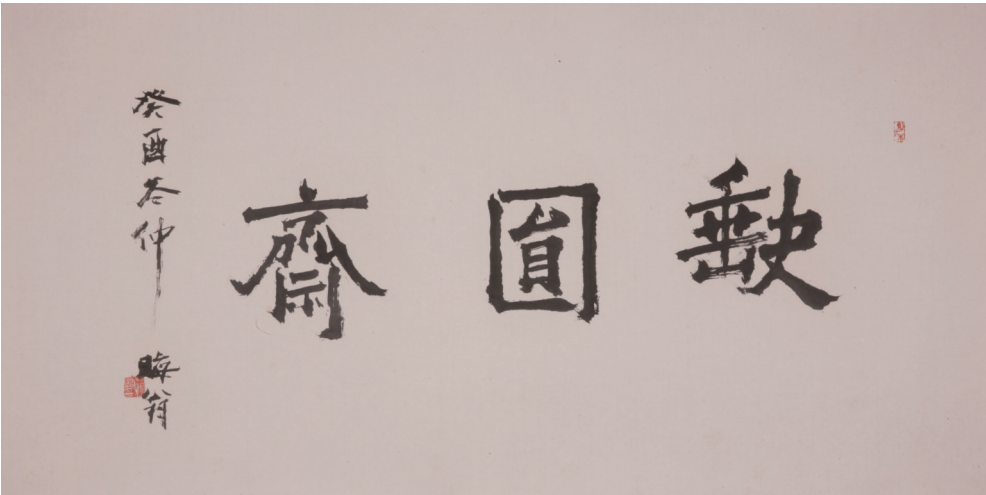 缺圓齋
癸酉冬仲
晦翁